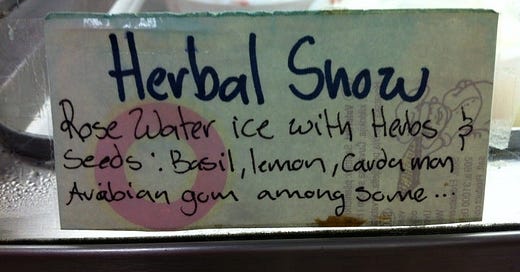 Herbal Snow
Rose Water ice with Herbs &
Seeds: Basil, lemon, Cardamon
Arabian gum among some...